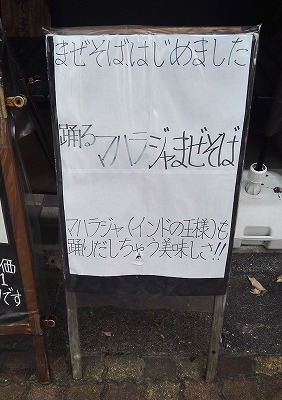 まぜそば、はじめました
踊るマハラジャまぜそば
マハラジャ(インドの王様)も
踊りだしちゃう美味しさ!!
価
1
です